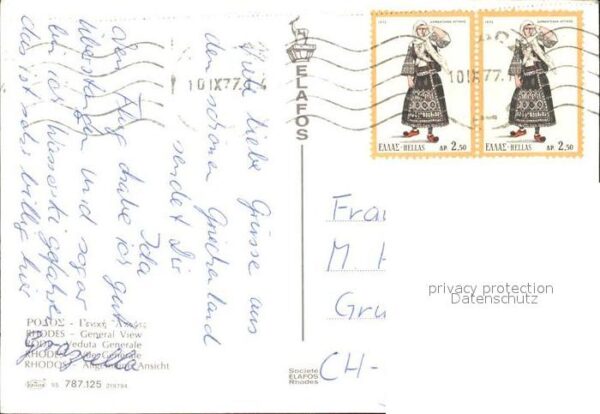 Viele liebe Grüsse aus
dem schönen Griechenland
sendet Dir
Ida
den Flug habe ich gut
überstanden und sogar
bin ich gefahren
das ist sehr billig hier
ΡΟΔΟΣ - Γενική Άποψις
RHODES - General View
RODI - Veduta Generale
RHODES - Vue Générale
RHODOS - Allgemeine Ansicht
55 787.125
ELAFOS
Société
ELAFOS
Rhodes
10 IX 77
10 IX 77
1972
ΕΛΛΑΣ-HELLAS ΔΡ. 2.50
1972
ΕΛΛΑΣ-HELLAS ΔΡ. 2.50
Fra
M
Gru
CH-
privacy protection
Datenschutz